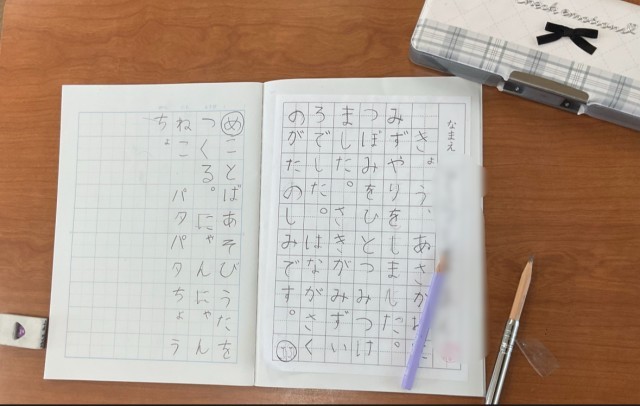 なまえ
きょう、あさがおに
みずやりをしました。
つぼみをひとつみつけ
ました。さきがみずい
ろでした。はながさく
のがたのしみです。
めことばあそびうたを
つくる。にゃんにゃん
ねこ パタパタちょう
ちょ